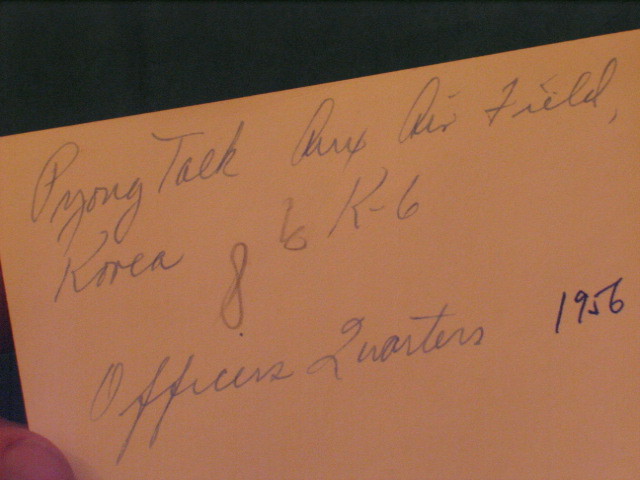 Pyong Taek Aux Air Field,
Korea 8 6 K-6
Officers Quarters 1956